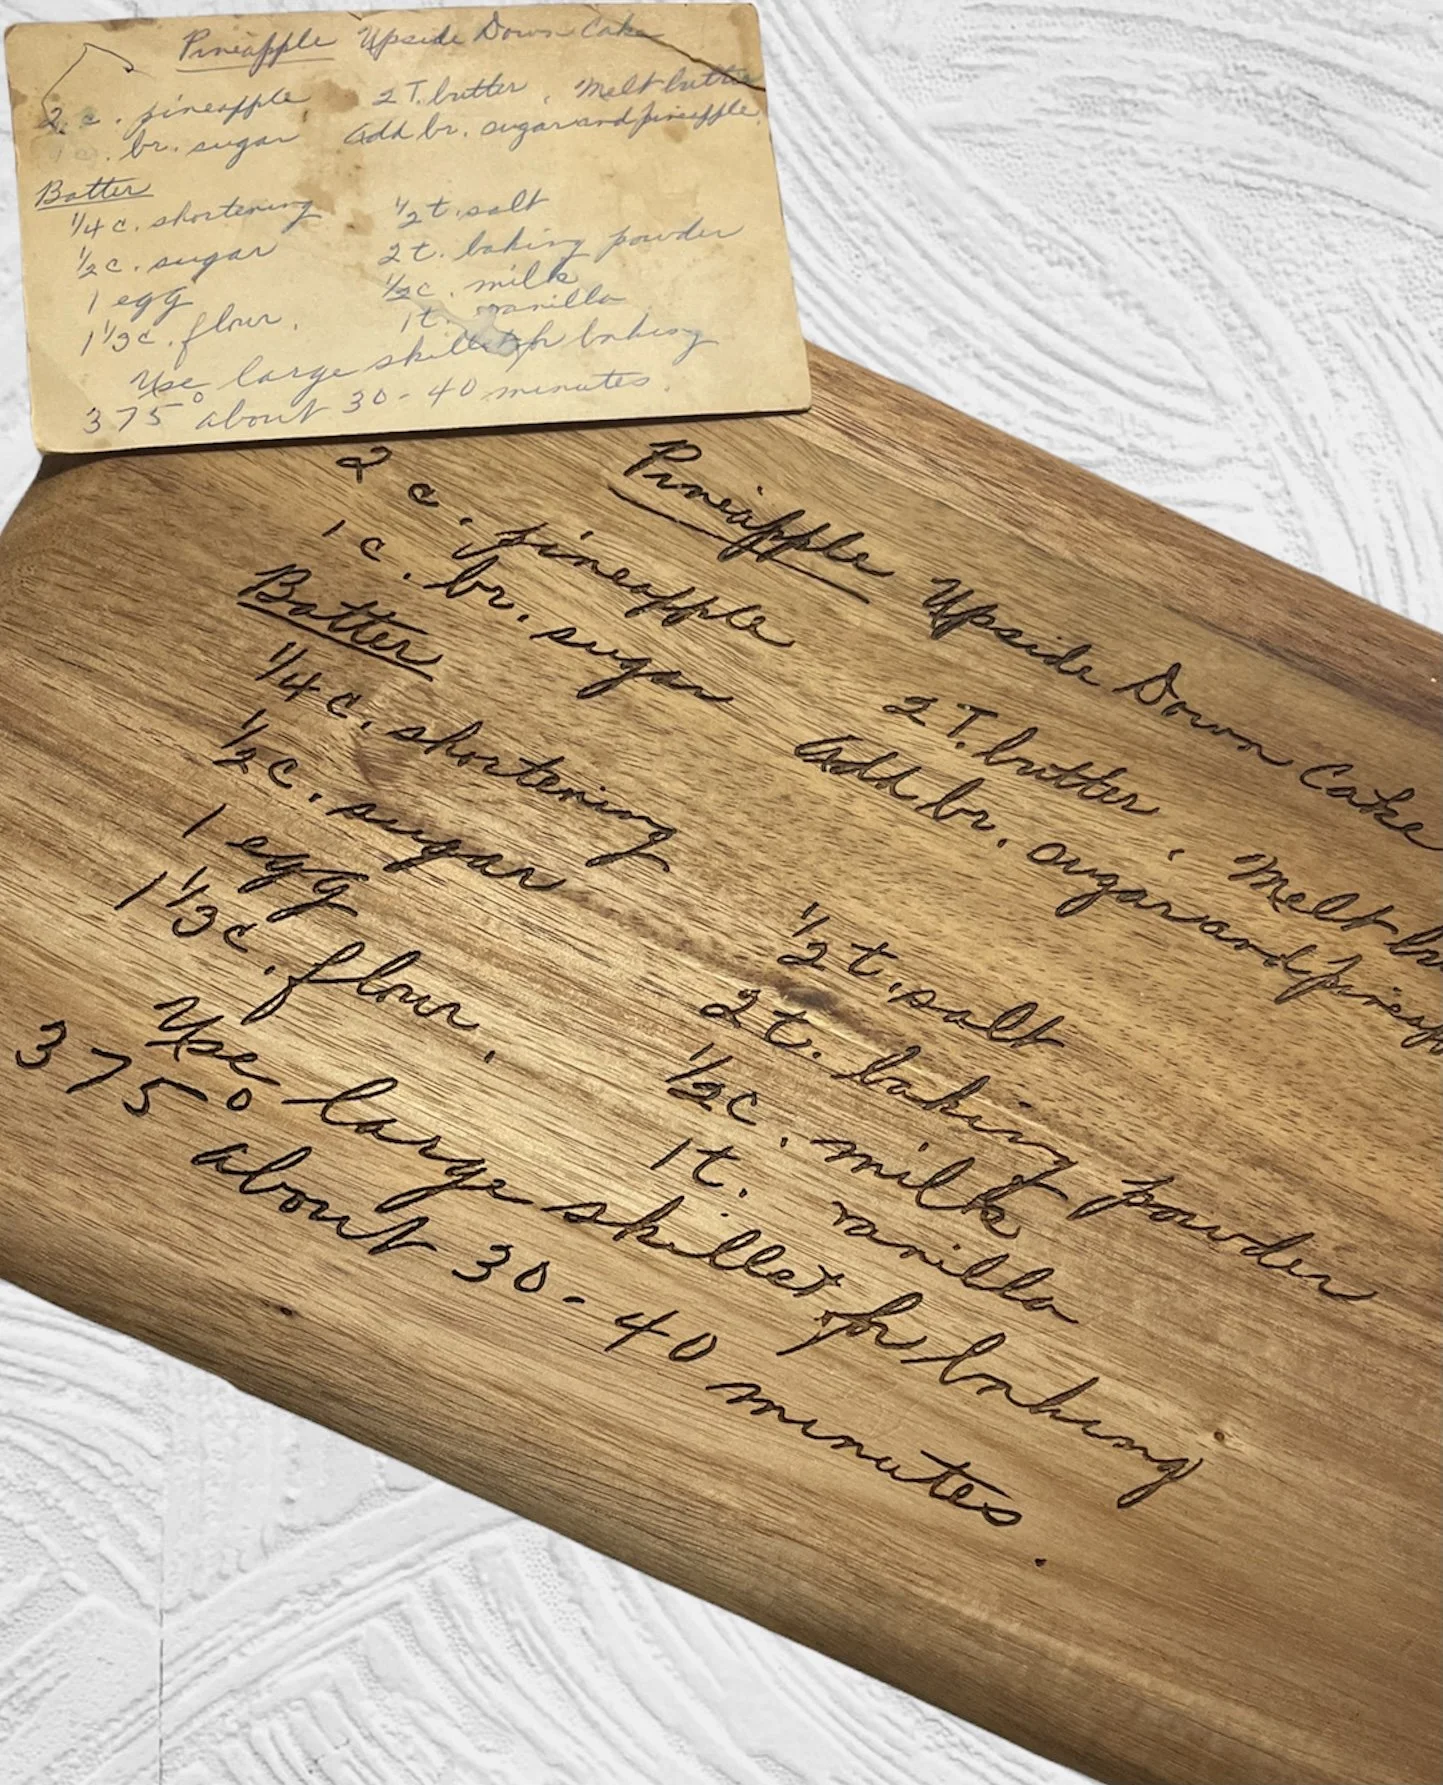 Pineapple Upside Down Cake
2 c. pineapple 2 T. butter . Melt butter
1 c. br. sugar Add br. sugar and pineapple.
Batter
1/4 c. shortening 1/2 t. salt
1/2 c. sugar 2 t. baking powder
1 egg 1/2 c. milk
1 1/3 c. flour. 1 t. vanilla
Use large skillet for baking
375° about 30-40 minutes.
Pineapple Upside Down Cake
2 c. pineapple 2 T. butter . Melt
1 c. br. sugar Add br. sugar and
Batter
1/4 c. shortening 1/2 t. salt
1/2 c. sugar 2 t. baking powder
1 egg 1/2 c. milk
1 1/3 c. flour. 1 t. vanilla
Use large skillet for baking
375° about 30-40 minutes.